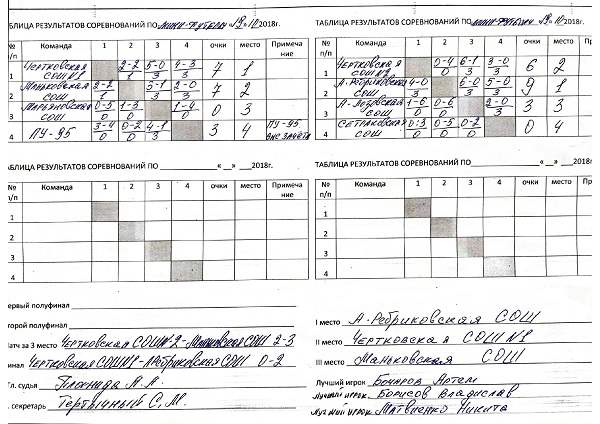 АБЛИЦА РЕЗУЛЬТАТОВ СОРЕВНОВАНИЙ ПО мини-футболу «19» 10 2018г.
№ п/п Команда 1 2 3 4 очки место Примеча ние
1 Чертковская СОШ №1 2-2 1 5-0 3 4-3 3 7 1
2 Маньковская СОШ 2-2 1 5-1 3 2-0 3 7 2
3 Марьяновская СОШ 0-5 0 1-3 0 1-4 0 0 3
4 ПУ-95 3-4 0 0-2 0 4-1 3 3 4 ПУ-95 вне зачёта
ТАБЛИЦА РЕЗУЛЬТАТОВ СОРЕВНОВАНИЙ ПО мини-футболу «19» 10 2018г.
№ п/п Команда 1 2 3 4 очки место Примеча ние
1 Чертковская СОШ №2 0-4 0 6-1 3 3-0 3 6 2
2 А-Ребриковская СОШ 4-0 3 6-0 3 5-0 3 9 1
3 СОШ 1-6 0 0-6 0 2-0 3 3 3
4 Сетраковская СОШ 0:3 0 0-5 0 0-2 0 0 4
АБЛИЦА РЕЗУЛЬТАТОВ СОРЕВНОВАНИЙ ПО «__» 2018г.
№ п/п Команда 1 2 3 4 очки место Примеча ние
1
2
3
4
ТАБЛИЦА РЕЗУЛЬТАТОВ СОРЕВНОВАНИЙ ПО «__» 2018г.
№ п/п Команда 1 2 3 4 очки место Примеча ние
1
2
3
4
ервый полуфинал
торой полуфинал
атч за 3 место Чертковская СОШ №2-Маньковская СОШ 2-3
инал Чертковская СОШ №1-А-Ребриковская СОШ 0-2
л. судья А.А.
. секретарь Тертычный С.М.
I место А-Ребриковская СОШ
II место Чертковская СОШ №1
III место Маньковская СОШ
Лучший игрок Бочаров Артем
Лучший игрок Борисов Владислав
Лучший игрок Матвиенко Никита